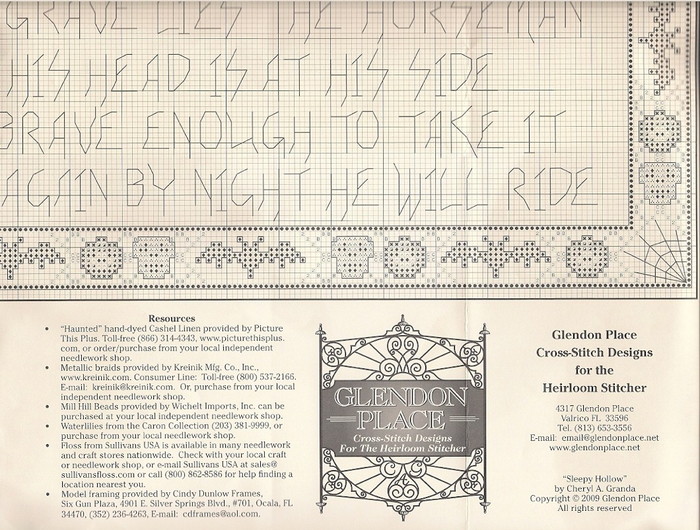 GRAVE LIES THE HORSEMAN
HIS HEAD IS AT HIS SIDE
BRAVE ENOUGH TO TAKE IT
AGAIN BY NIGHT HE WILL RIDE
Resources
• "Haunted" hand-dyed Cashel Linen provided by Picture
This Plus. Toll-free (866) 314-4343, www.picturethisplus.
com, or order/purchase from your local independent
needlework shop.
• Metallic braids provided by Kreinik Mfg. Co., Inc.,
www.kreinik.com. Consumer Line: Toll-free (800) 537-2166.
E-mail: kreinik@kreinik.com. Or, purchase from your local
independent needlework shop.
• Mill Hill Beads provided by Wichelt Imports, Inc. can be
purchased at your local independent needlework shop.
• Waterlilies from the Caron Collection (203) 381-9999, or
purchase from your local needlework shop.
• Floss from Sullivans USA is available in many needlework
and craft stores nationwide. Check with your local craft
or needlework shop, or e-mail Sullivans USA at sales@
sullivansfloss.com or call (800) 862-8586 for help finding a
location nearest you.
• Model framing provided by Cindy Dunlow Frames,
Six Gun Plaza, 4901 E. Silver Springs Blvd., #701, Ocala, FL
34470, (352) 236-4263, E-mail: cdframes@aol.com.
GLENDON
PLACE
Cross-Stitch Designs
For The Heirloom Stitcher
Glendon Place
Cross-Stitch Designs
for the
Heirloom Stitcher
4317 Glendon Place
Valrico FL 33596
Tel. (813) 653-3556
E-mail: email@glendonplace.net
www.glendonplace.net
"Sleepy Hollow"
by Cheryl A. Granda
Copyright © 2009 Glendon Place
All rights reserved